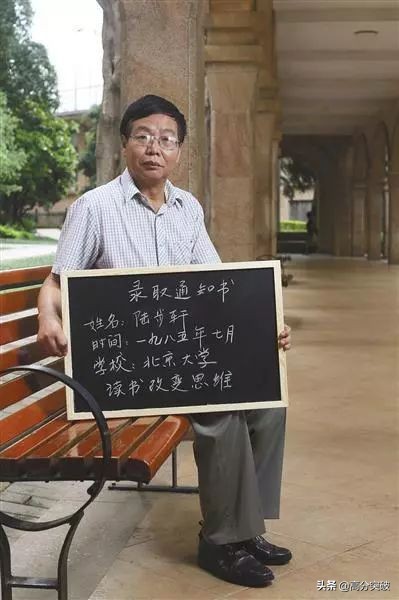 录取通知书
姓名：陆步轩
时间：一九八五年七月
学校：北京大学
读书改变思维
头条 @高分突破